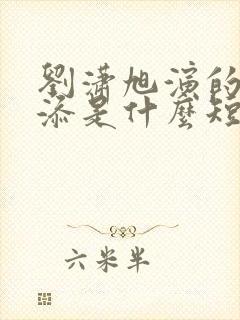 劉瀟旭演的
添是什麼短
六米半